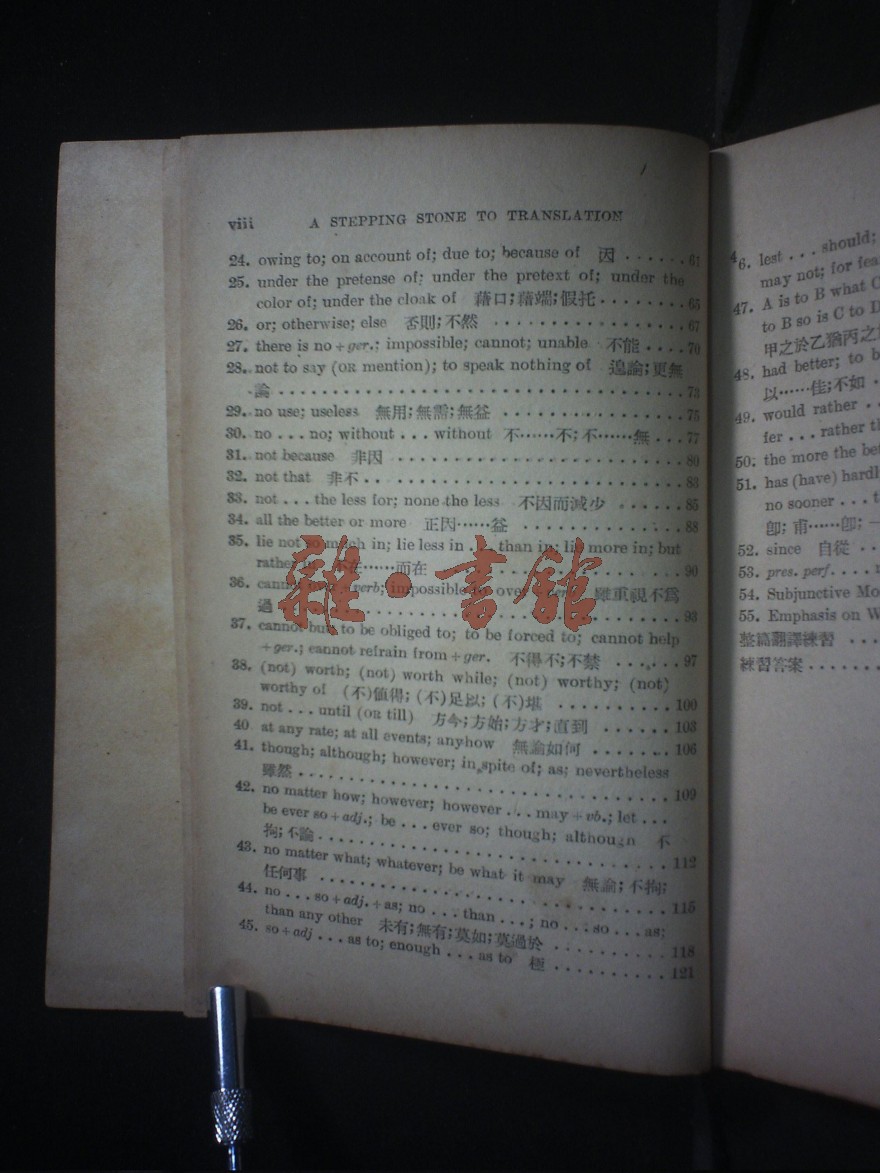 viii A STEPPING STONE TO TRANSLATION
24. owing to; on account of; due to; because of 因 ...... 61
25. under the pretense of; under the pretext of; under the
color of; under the cloak of 藉口;藉端;假托........ 65
26. or; otherwise; else 否則;不然 ................. 67
27. there is no + ger.; impossible; cannot; unable 不能 .... 70
28. not to say (OR mention); to speak nothing of 遑論;更無
論 ........................................ 73
29. no use; useless 無用;無需;無益 ................ 75
30. no ... no; without ... without 不……不;不……無 ... 77
31. not because 非因 ......................... 80
32. not that 非不 ........................... 83
33. not ... the less for; none the less 不因而減少 ...... 85
34. all the better or more 正因……益 .............. 88
35. lie not so much in; lie less in ... than in; lie more in; but
rather in 不在……而在 ..................... 90
36. cannot over + verb; impossible to over 雖重視不爲
過 ........................................ 93
37. cannot but; to be obliged to; to be forced to; cannot help
+ ger.; cannot refrain from + ger. 不得不;不禁 ...... 97
38. (not) worth; (not) worth while; (not) worthy; (not)
worthy of (不)值得; (不)足以; (不)堪 .......... 100
39. not ... until (OR till) 方今;方始;方才;直到 ...... 103
40 at any rate; at all events; anyhow 無論如何 ....... 106
41. though; although; however; in spite of; as; nevertheless
雖然 .................................... 109
42. no matter how; however; however ... may + vb.; let ...
be ever so + adj.; be ... ever so; though; although 不
拘;不論 ................................. 112
43. no matter what; whatever; be what it may 無論;不拘;
任何事 .................................. 115
44. no ... so + adj. + as; no ... than ...; no ... so ... as;
than any other 未有;無有;莫如;莫過於 .......... 118
45. so + adj ... as to; enough ... as to 極 .......... 121
雜·書館
46. lest ... should;
may not; for fea
47. A is to B what C
to B so is C to D
甲之於乙猶丙之
48. had better; to b
以……佳;不如
49. would rather ..
fer ... rather th
50. the more the bet
51. has (have) hardl
no sooner ... t
卽; 甫……卽; 一
52. since 自從 ...
53. pres. perf. ....
54. Subjunctive Mo
55. Emphasis on W
整篇翻譯練習 ...
練習答案 .......